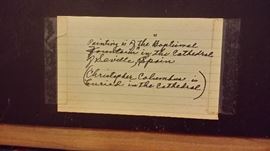 "
Painting is of the Baptismal
Fountain in the Cathedral
of Seville, Spain
(Christopher Columbus is
buried in the Cathedral)